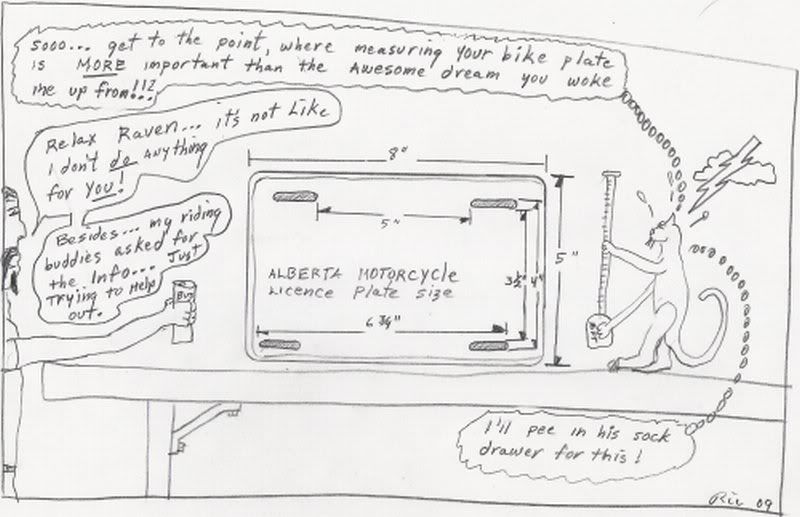 Sooo... get to the point, where measuring your bike plate
is MORE important than the Awesome dream you woke
me up from!!?
Relax Raven... it's not Like
I don't do Anything
for You!
Besides... my riding
buddies asked for
the Info... Just
Trying to Help
out.
BUD
8"
5"
5"
3½" 4"
ALBERTA MOTORCYCLE
LICENCE Plate size
6 3/4"
I'll pee in his sock
drawer for this!
Ric 09